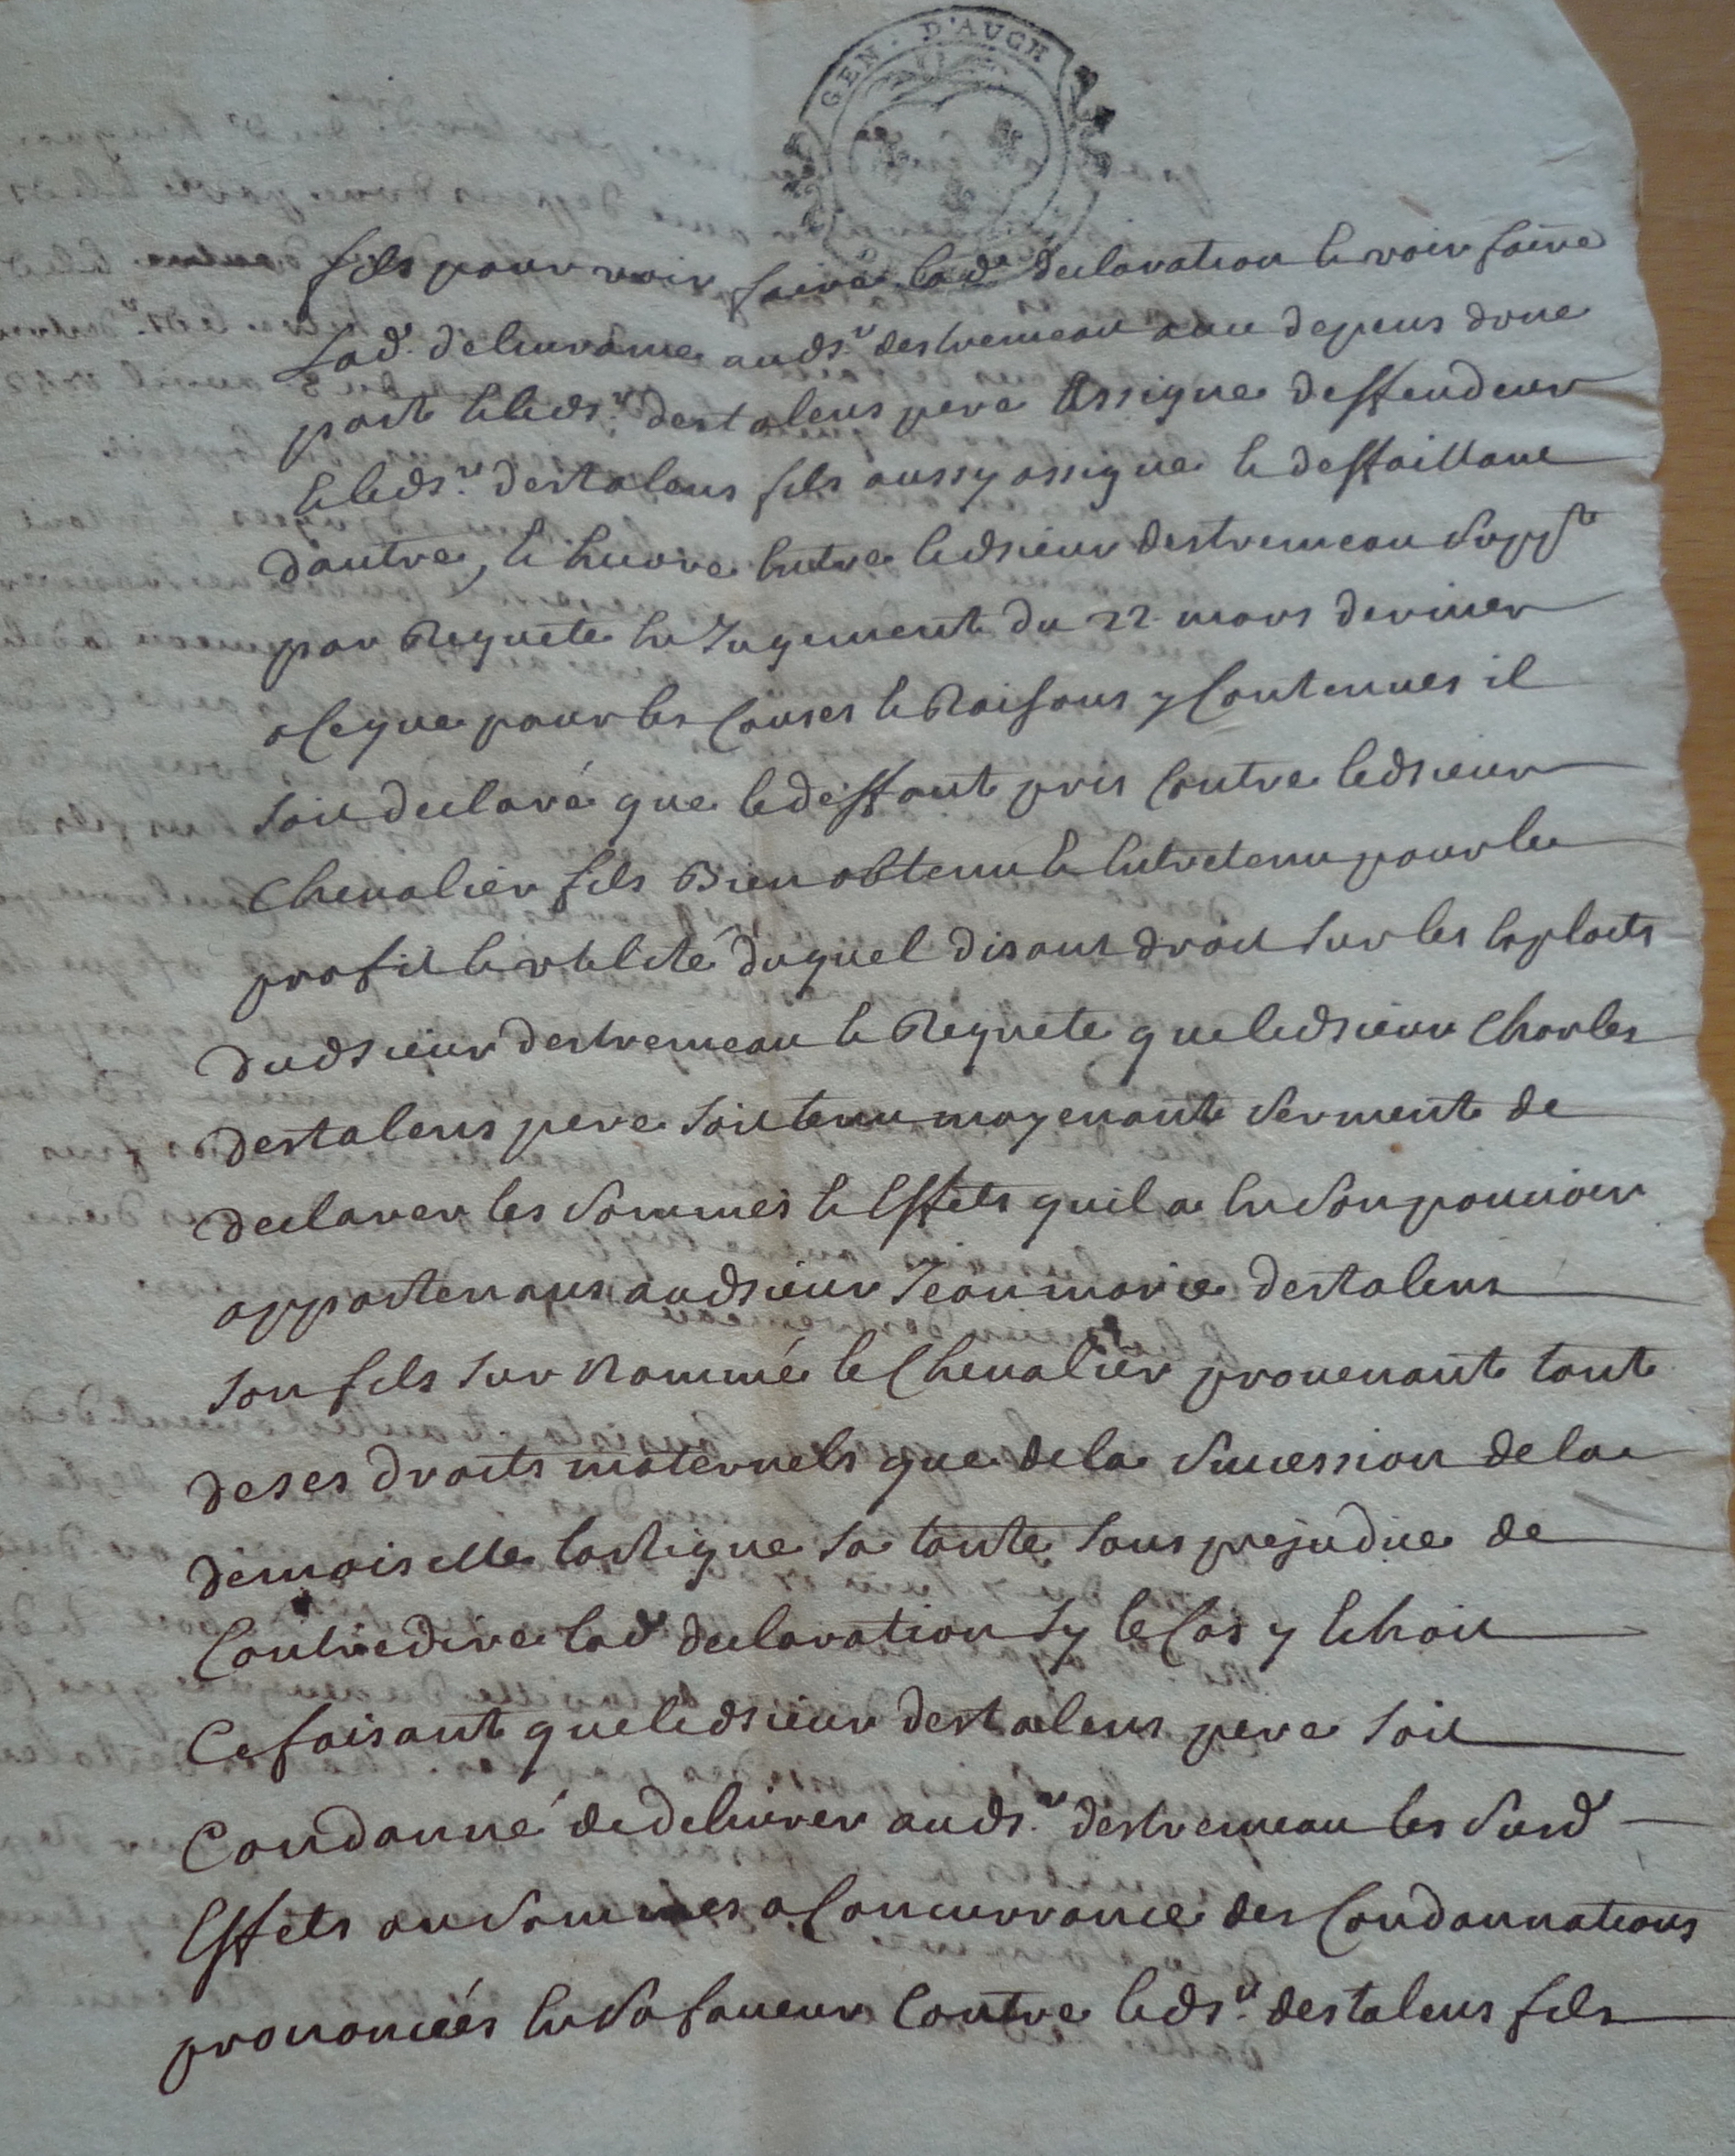 GEN. D'AUCH
fils pour voir faire lad.e declaration et voir faire
lad.e deliurance auds.r destremeau auec depens dune
part et leds.r destalens pere assigné deffendeur
et leds.r destalens fils aussy assigné et deffaillant
dautre, et encore entre ledsieur destremeau supp.t
par Requete en Jugement du 22 mars dernier
a ce que pour les Causes et Raisons y Contenues il
soit declaré que le deffaut pris Contre ledsieur
Chevalier fils Bien obtenu et entretenu pour le
profit et utelité duquel disant droit sur les exploits
dudsieur destremeau et Requete que ledsieur Charles
destalens pere soit tenu moyenant serment de
declarer les sommes et Effets quil a en son pouuoir
appartenans audsieur Jean marie destalens
son fils sur Nommé le Chevalier prouenant tant
de ses droits maternels que de la succession de la
demoiselle sa tante sans prejudice de
Contredire lad.e declaration sy le Cas y echoit
Ce faisant que ledsieur destalens pere soit
Condanné de deliurer auds.r destremeau les susd.
Effets ou sommes a Concurrance des Condannations
prononcées en sa faueur Contre leds.r destalens fils